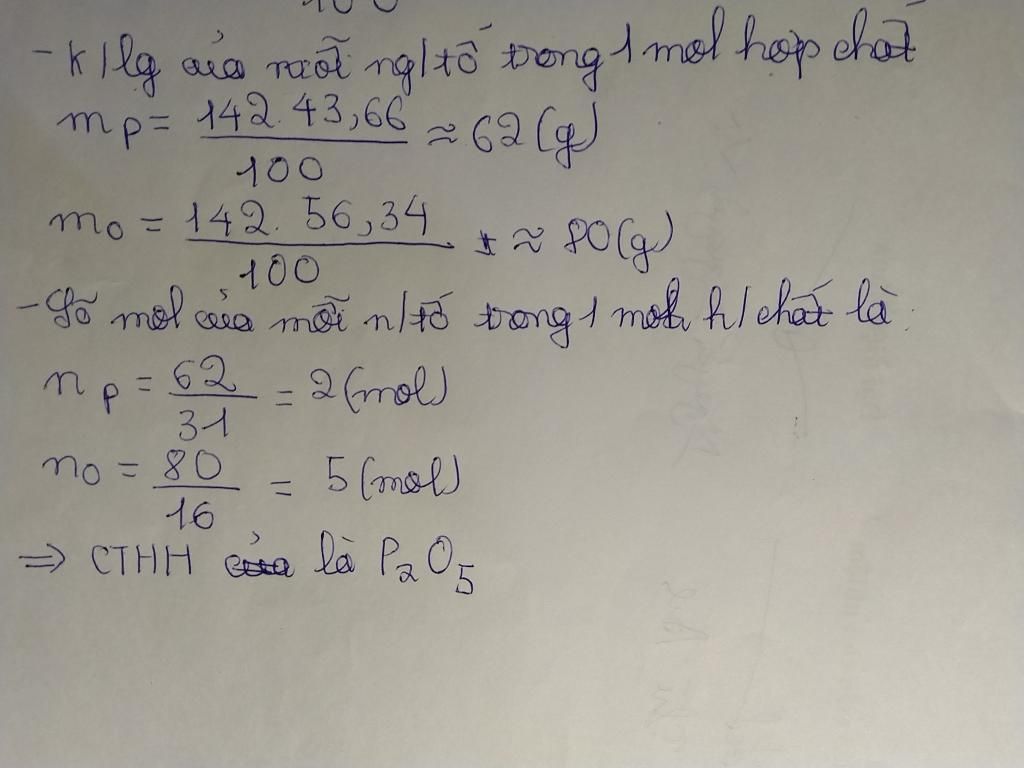 100
- k/lg của mỗi ng/tố trong 1 mol hợp chất
mP = 142.43,66 / 100 ≈ 62 (g)
mO = 142. 56,34 / 100 ≈ 80 (g)
- Số mol của mỗi n/tố trong 1 mol h/chất là:
nP = 62 / 31 = 2 (mol)
nO = 80 / 16 = 5 (mol)
⇒ CTHH của là P₂O₅